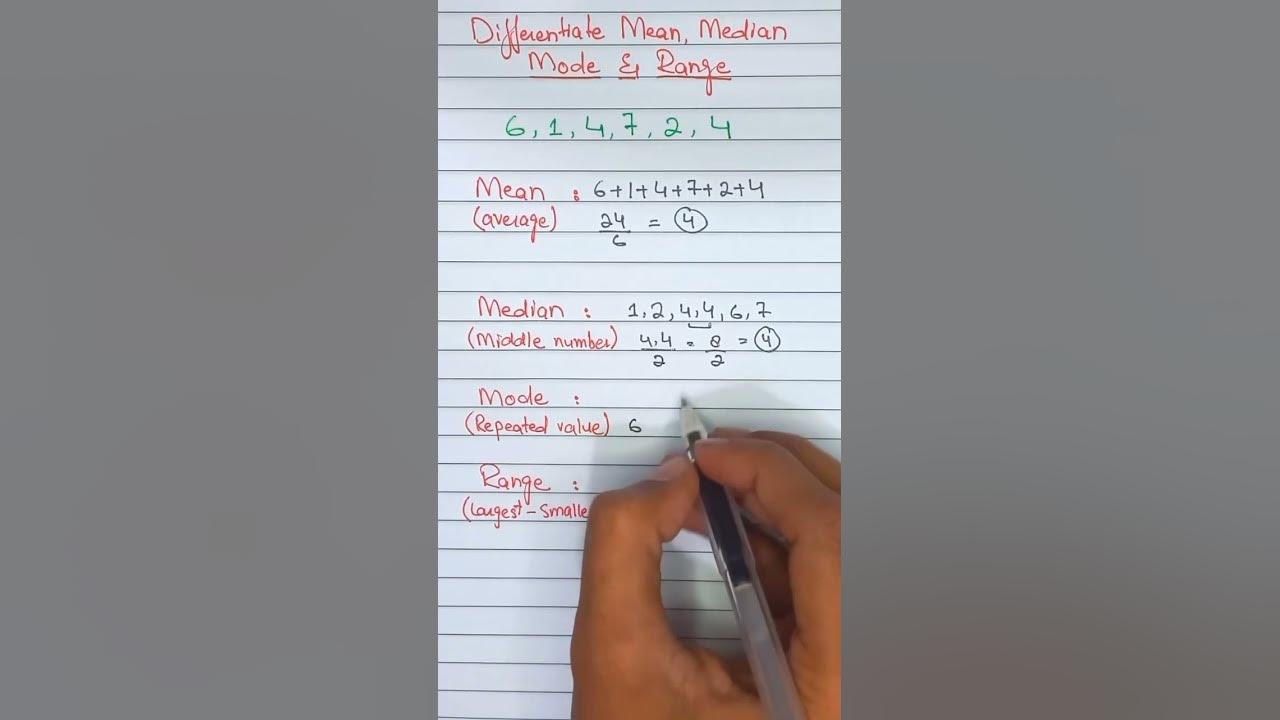 Differentiate Mean, Median
Mode & Range
6, 1, 4, 7, 2, 4
Mean : 6+1+4+7+2+4
(average) 24/6 = 4
Median : 1, 2, 4, 4, 6, 7
(Middle number) 4,4/2 = 8/2 = 4
Mode :
(Repeated value) 6
Range :
(Largest - Smalle